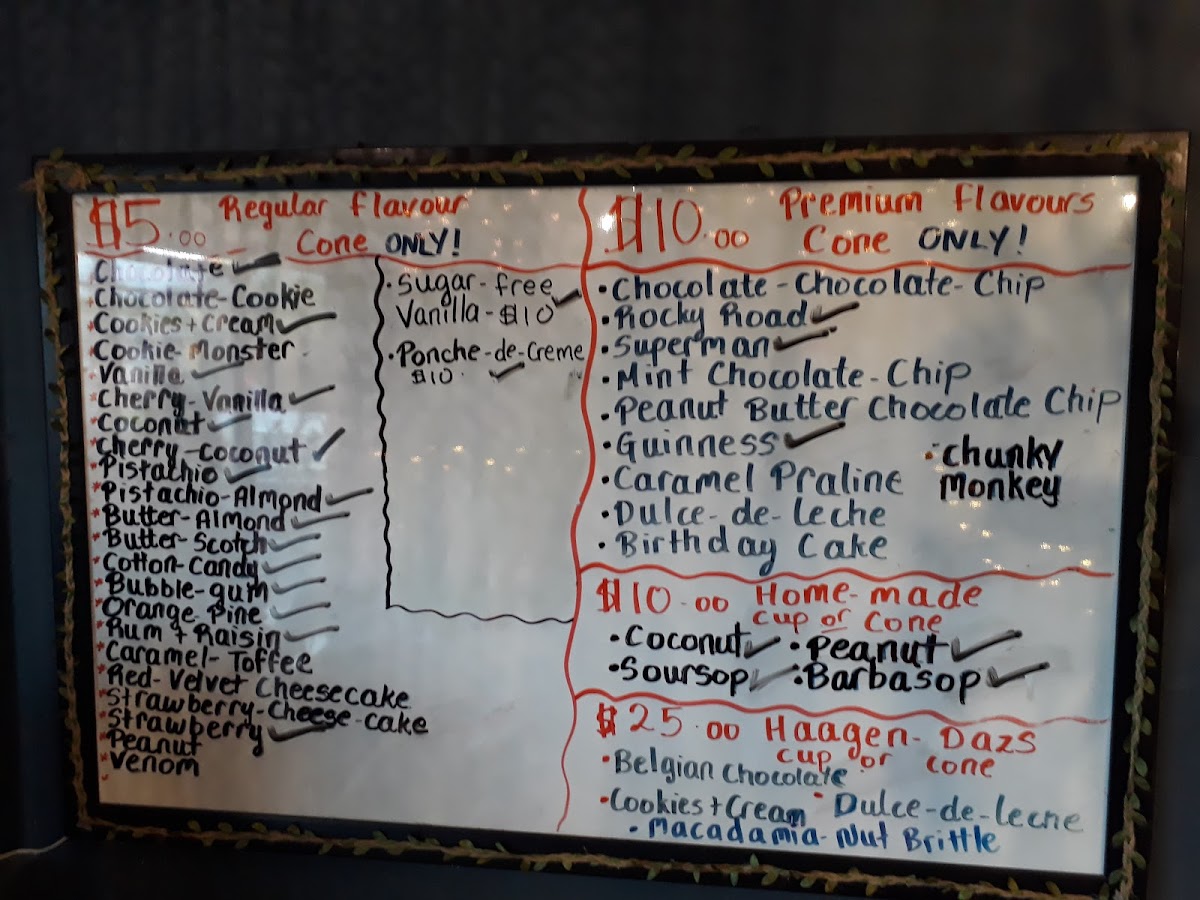 $5.00 Regular flavour
Cone ONLY!
Chocolate
Chocolate-Cookie
Cookies + Cream
Cookie-Monster
Vanilla
Cherry-Vanilla
Coconut
Cherry-Coconut
Pistachio
Pistachio-Almond
Butter-Almond
Butter-Scotch
Cotton-Candy
Bubble-gum
Orange-Pine
Rum + Raisin
Caramel-Toffee
Red-Velvet Cheesecake
Strawberry-Cheese-cake
Strawberry
Peanut
Venom
• Sugar-free
Vanilla-$10
• Ponche-de-Creme
$10.
$10.00 Premium Flavours
Cone ONLY!
• Chocolate-Chocolate-Chip
• Rocky Road
• Superman
• Mint Chocolate-Chip
• Peanut Butter Chocolate Chip
• Guinness
• Caramel Praline
• Dulce-de-leche
• Birthday Cake
• Chunky
Monkey
$10.00 Home-made
cup or cone
• Coconut • Peanut
• Soursop • Barbasop
$25.00 Haagen-Dazs
cup or cone
• Belgian Chocolate
• Cookies + Cream • Dulce-de-leche
• Macadamia-Nut Brittle